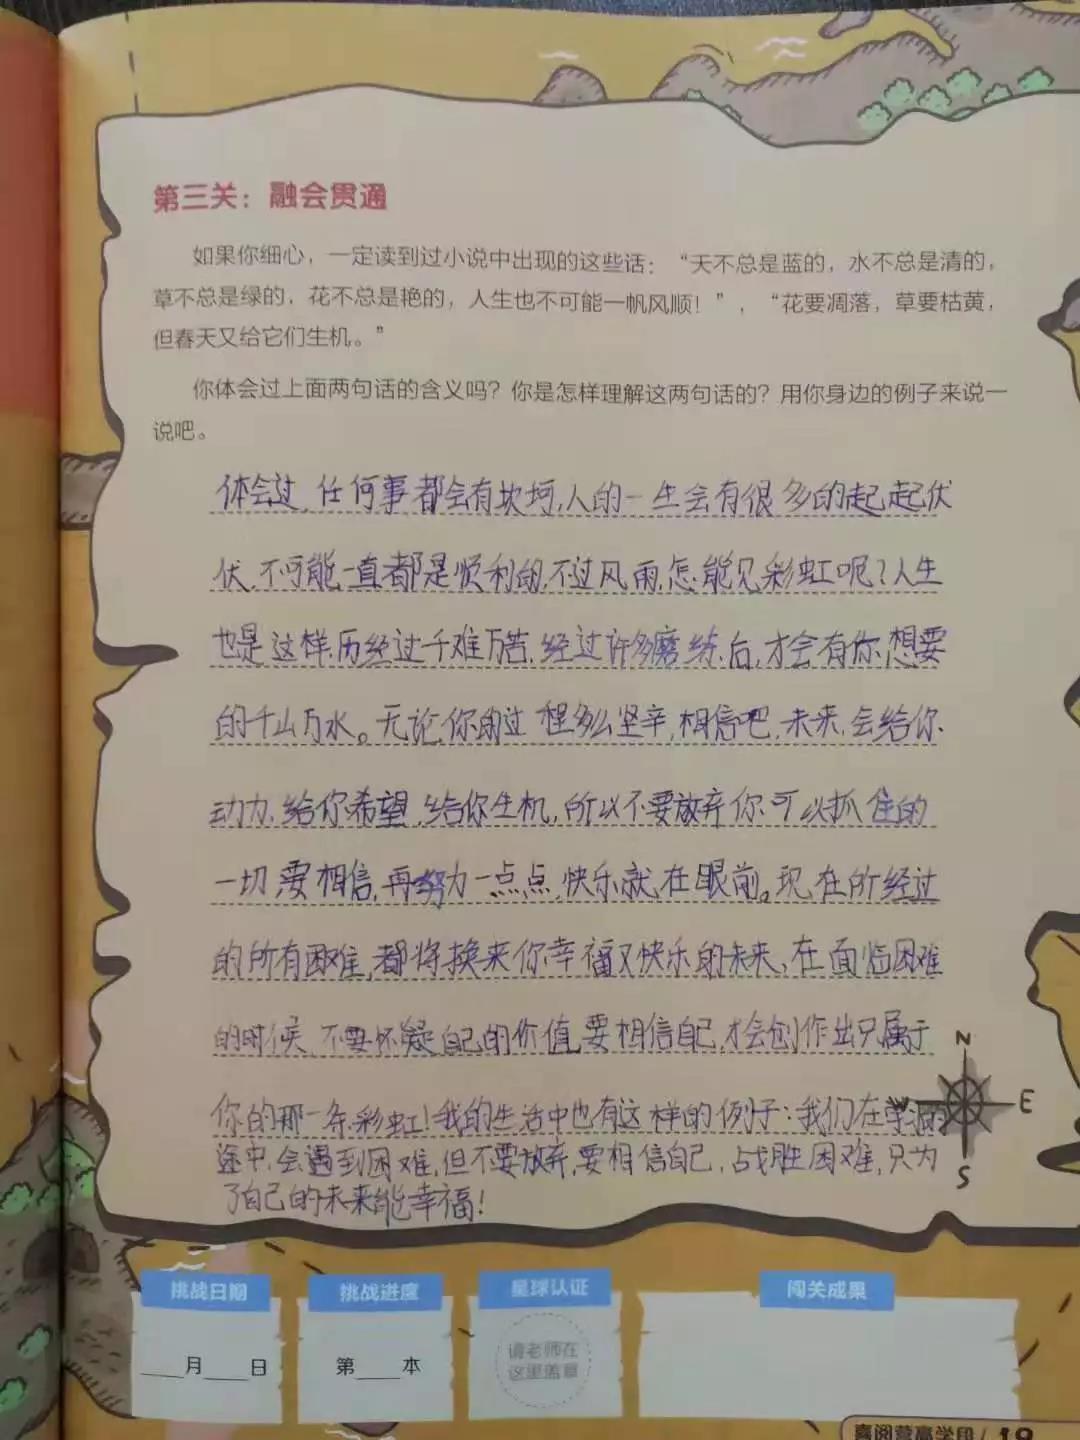 第三关：融会贯通
如果你细心，一定读到过小说中出现的这些话：“天不总是蓝的，水不总是清的，
草不总是绿的，花不总是艳的，人生也不可能一帆风顺！”，“花要凋落，草要枯黄，
但春天又给它们生机。”
你体会过上面两句话的含义吗？你是怎样理解这两句话的？用你身边的例子来说一
说吧。
体会过，任何事都会有坎坷，人的一生会有很多的起起伏
伏，不可能一直都是顺利的，不过风雨，怎能见彩虹呢？人生
也是这样，历经过千难万苦，经过许多磨练后，才会有你想要
的千山万水。无论你的过程多么坚辛，相信吧，未来，会给你
动力，给你希望，给你生机，所以不要放弃你可以抓住的
一切要相信，再努力一点点，快乐就在眼前。现在所经过
的所有困难，都将换来你幸福又快乐的未来，在面临困难
的时候，不要怀疑自己的价值，要相信自己，才会创作出只属于
你的那一条彩虹！我的生活中也有这样的例子：我们在学源的
途中，会遇到困难，但不要放弃，要相信自己，战胜困难，只为
了自己的未来能幸福！
N
W
E
S
挑战日期
挑战进度
星球认证
闯关成果
___月___日
第___本
请老师在
这里盖章
喜阅营高学段/19